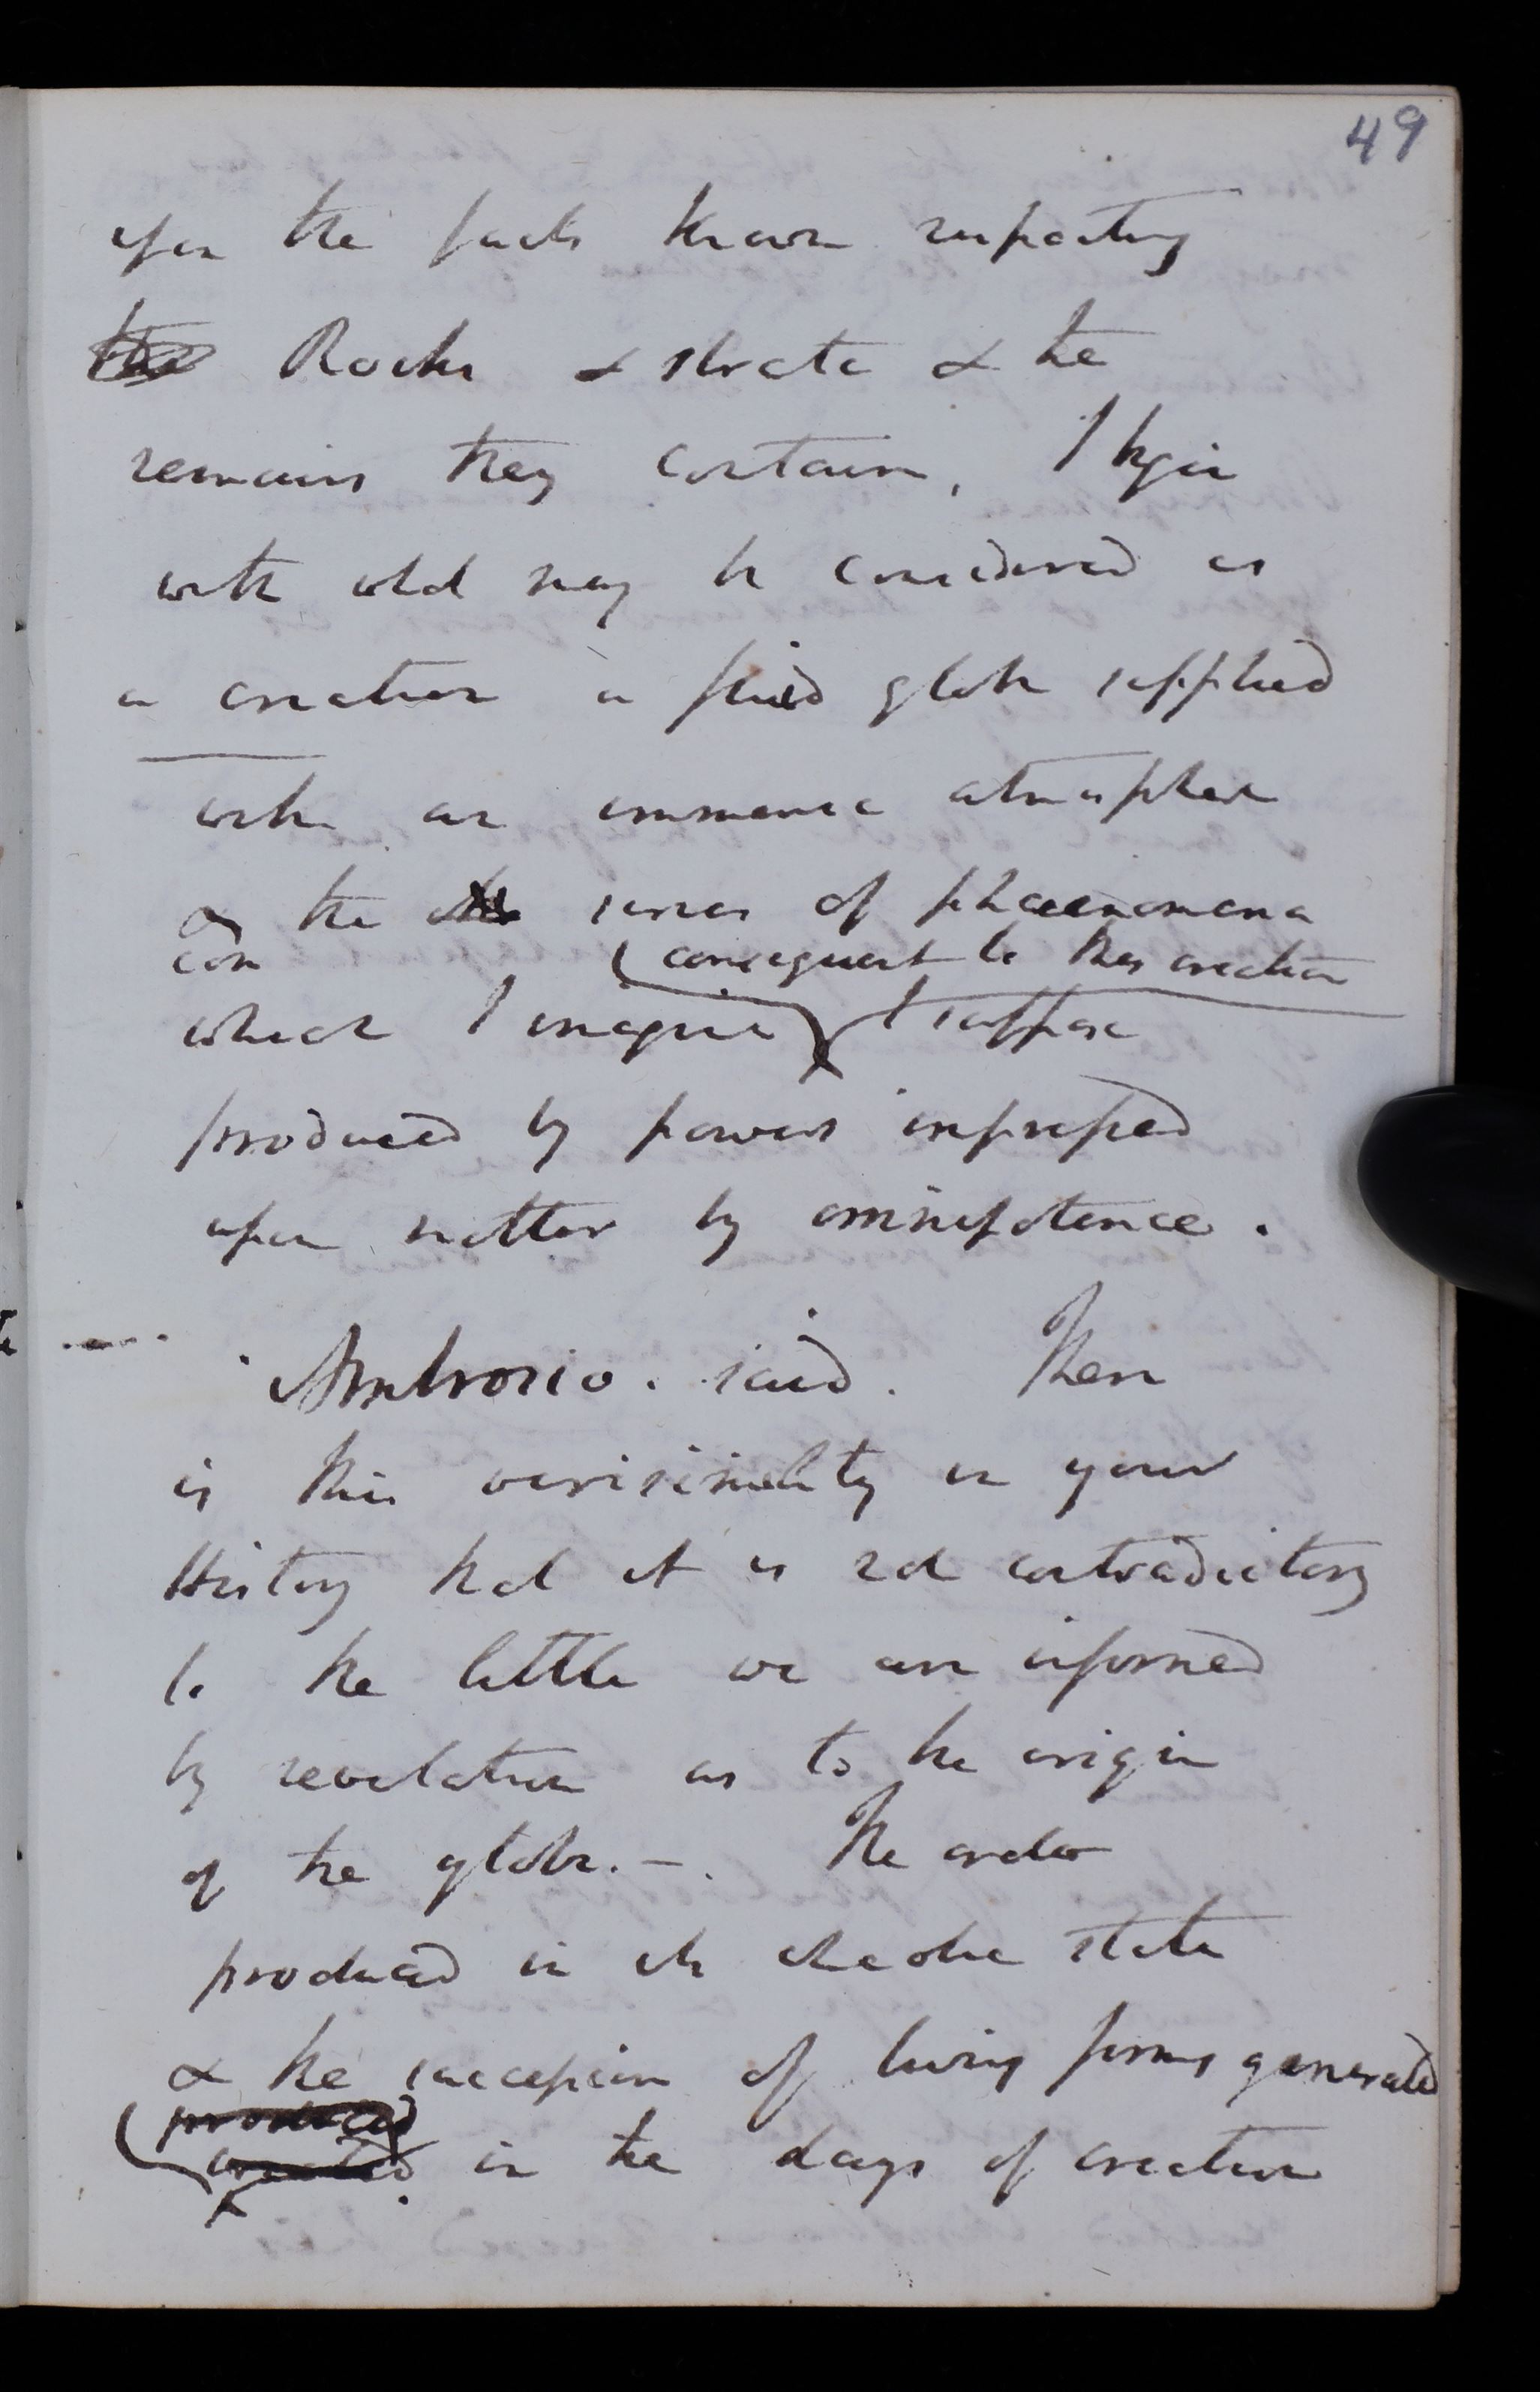 49
upon the facts known respecting
the Rocks & strata & the
remains they contain, I begin
with what may be considered as
a creation a fluid globe supplied
with an immense atmosphere
& the series of phaenomena
con (consequent to this creation
which I imagine) I suppose
produced by powers impressed
upon matter by omnipotence.
Ambrosio. said. There
is this verisimility in your
History that it is not contradictory
to the little we are informed
by revelation as to the origin
of the globe. -. The order
produced in its chaotic state
& the succession of living forms generated
(produced
created in the days of creation